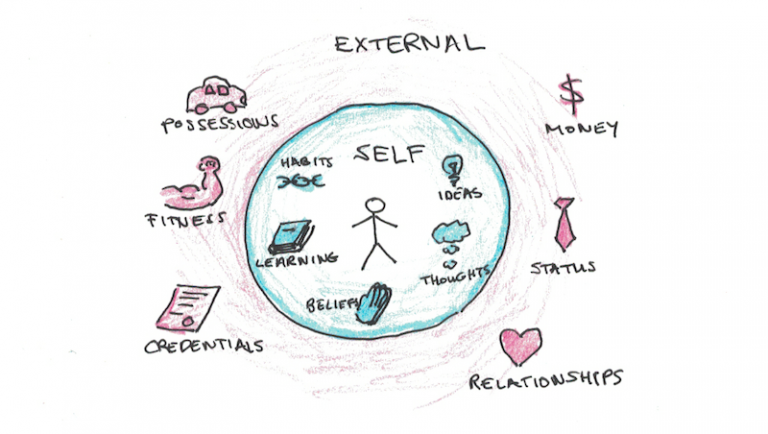 EXTERNAL
POSSESSIONS
MONEY
HABITS
SELF
IDEAS
FITNESS
LEARNING
THOUGHTS
STATUS
BELIEFS
CREDENTIALS
RELATIONSHIPS